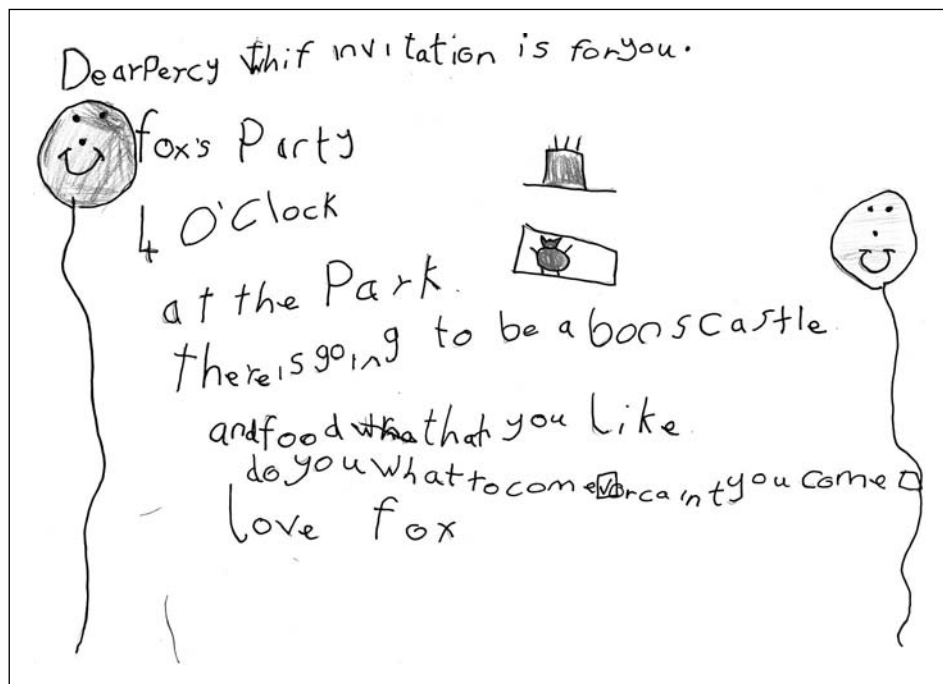 Dear Percy thif invitation is for you.
fox's Party
4 O'Clock
at the Park.
there is going to be a bons castle
and food that you like.
do you what to come or caint you come
love fox